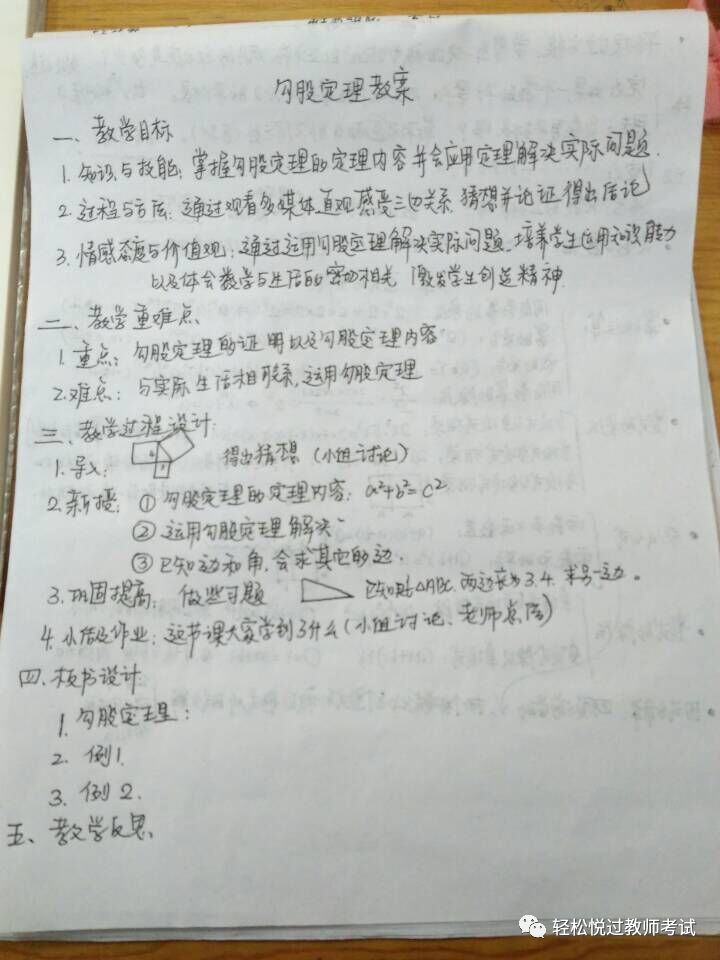 勾股定理教案
一、教学目标
1. 知识与技能：掌握勾股定理的定理内容并会应用定理解决实际问题.
2. 过程与方法：通过观看多媒体直观感受三边关系,猜想并论证得出结论
3. 情感态度与价值观：通过运用勾股定理解决实际问题.培养学生运用知识能力
以及体会数学与生活的密切相关 激发学生创造精神.
二、教学重难点
1. 重点：勾股定理的证明以及勾股定理内容
2. 难点：与实际生活相联系,运用勾股定理
三、教学过程设计：
1. 导入： 得出猜想（小组讨论）
2. 新授：①勾股定理的定理内容：a²+b²=c²
②运用勾股定理解决
③已知边和角,会求其它的边.
3. 巩固提高：做些习题 已知Rt△ABC,两边长为3.4.求另一边。
4. 小结及作业：这节课大家学到了什么(小组讨论、老师总结)
四、板书设计
1. 勾股定理：
2. 例1.
3. 例2.
五、教学反思、
轻松悦过教师考试